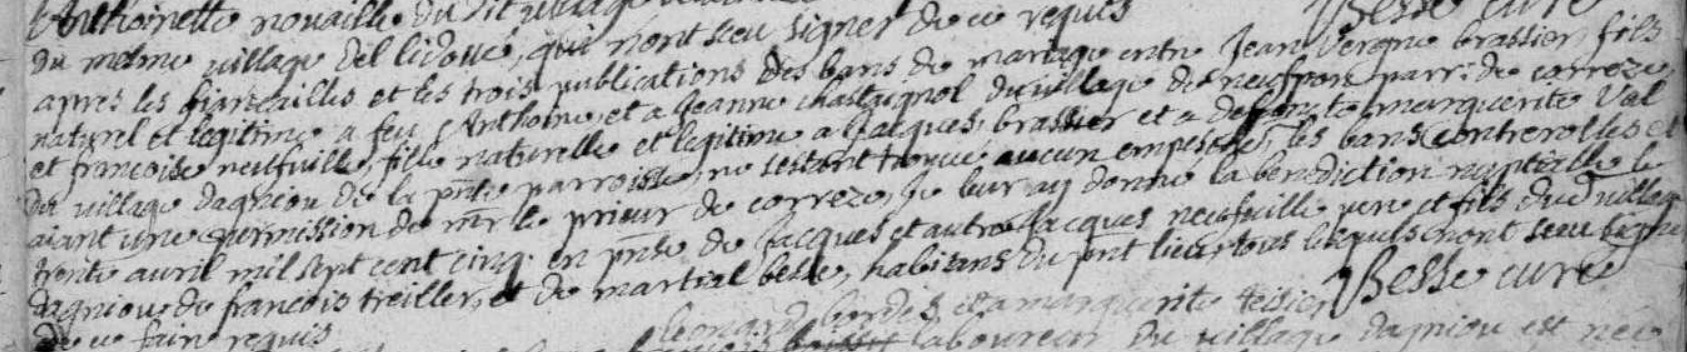 Anthoinette nouaille du dit village
du mesme village del lidoue, qui n'ont sceu signer de ce requis Besse curé
apres les fiancailles et les trois publications des bans de mariage entre Jean Vergne brassier, fils
naturel et legitime a feu Anthoine, et a Jeanne chastaignol du village de neufpon parr: de correze,
et francoise neufuille, fille naturelle et legitime a Jacques, brassier et a deffuncte marguerite Val
du village dagniou de la pnte parroisse, ne sestant trouué aucun empesche, les bans controrolles et
aiant une permission de mr le prieur de correze, je leur ay donné la benediction nuptialle le
trente auril mil sept cent cinq. en pnce de Jacques et autre Jacques neufuille pere et fils dud village
dagniou de francois treiller, et de martial besse, habitans du pnt lieu, tous lesquels n'ont sceu signer
de ce faire requis Besse curé
leonard bordes et a marguerite teisier
laboureur du village dagniou est née